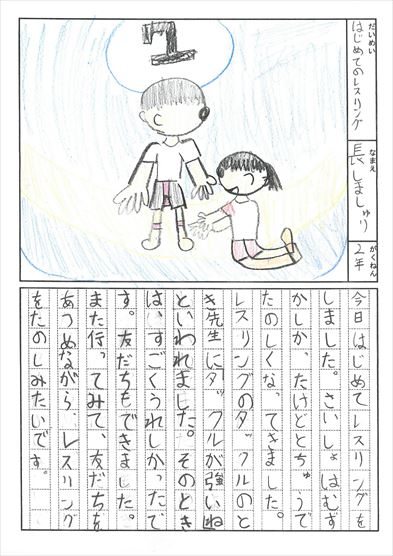 だいめい
はじめてのレスリング
なまえ
長しましゅり
がくねん
2年
今日はじめてレスリングを
しました。さいしょはむず
かしかったけどとちゅうで
たのしくなってきました。
レスリングのタックルのと
き先生にタックルが強いね
といわれました。そのとき
は、すごくうれしかったで
す。友だちもできました。
また行ってみて、友だちを
あつめながら、レスリング
をたのしみたいです。